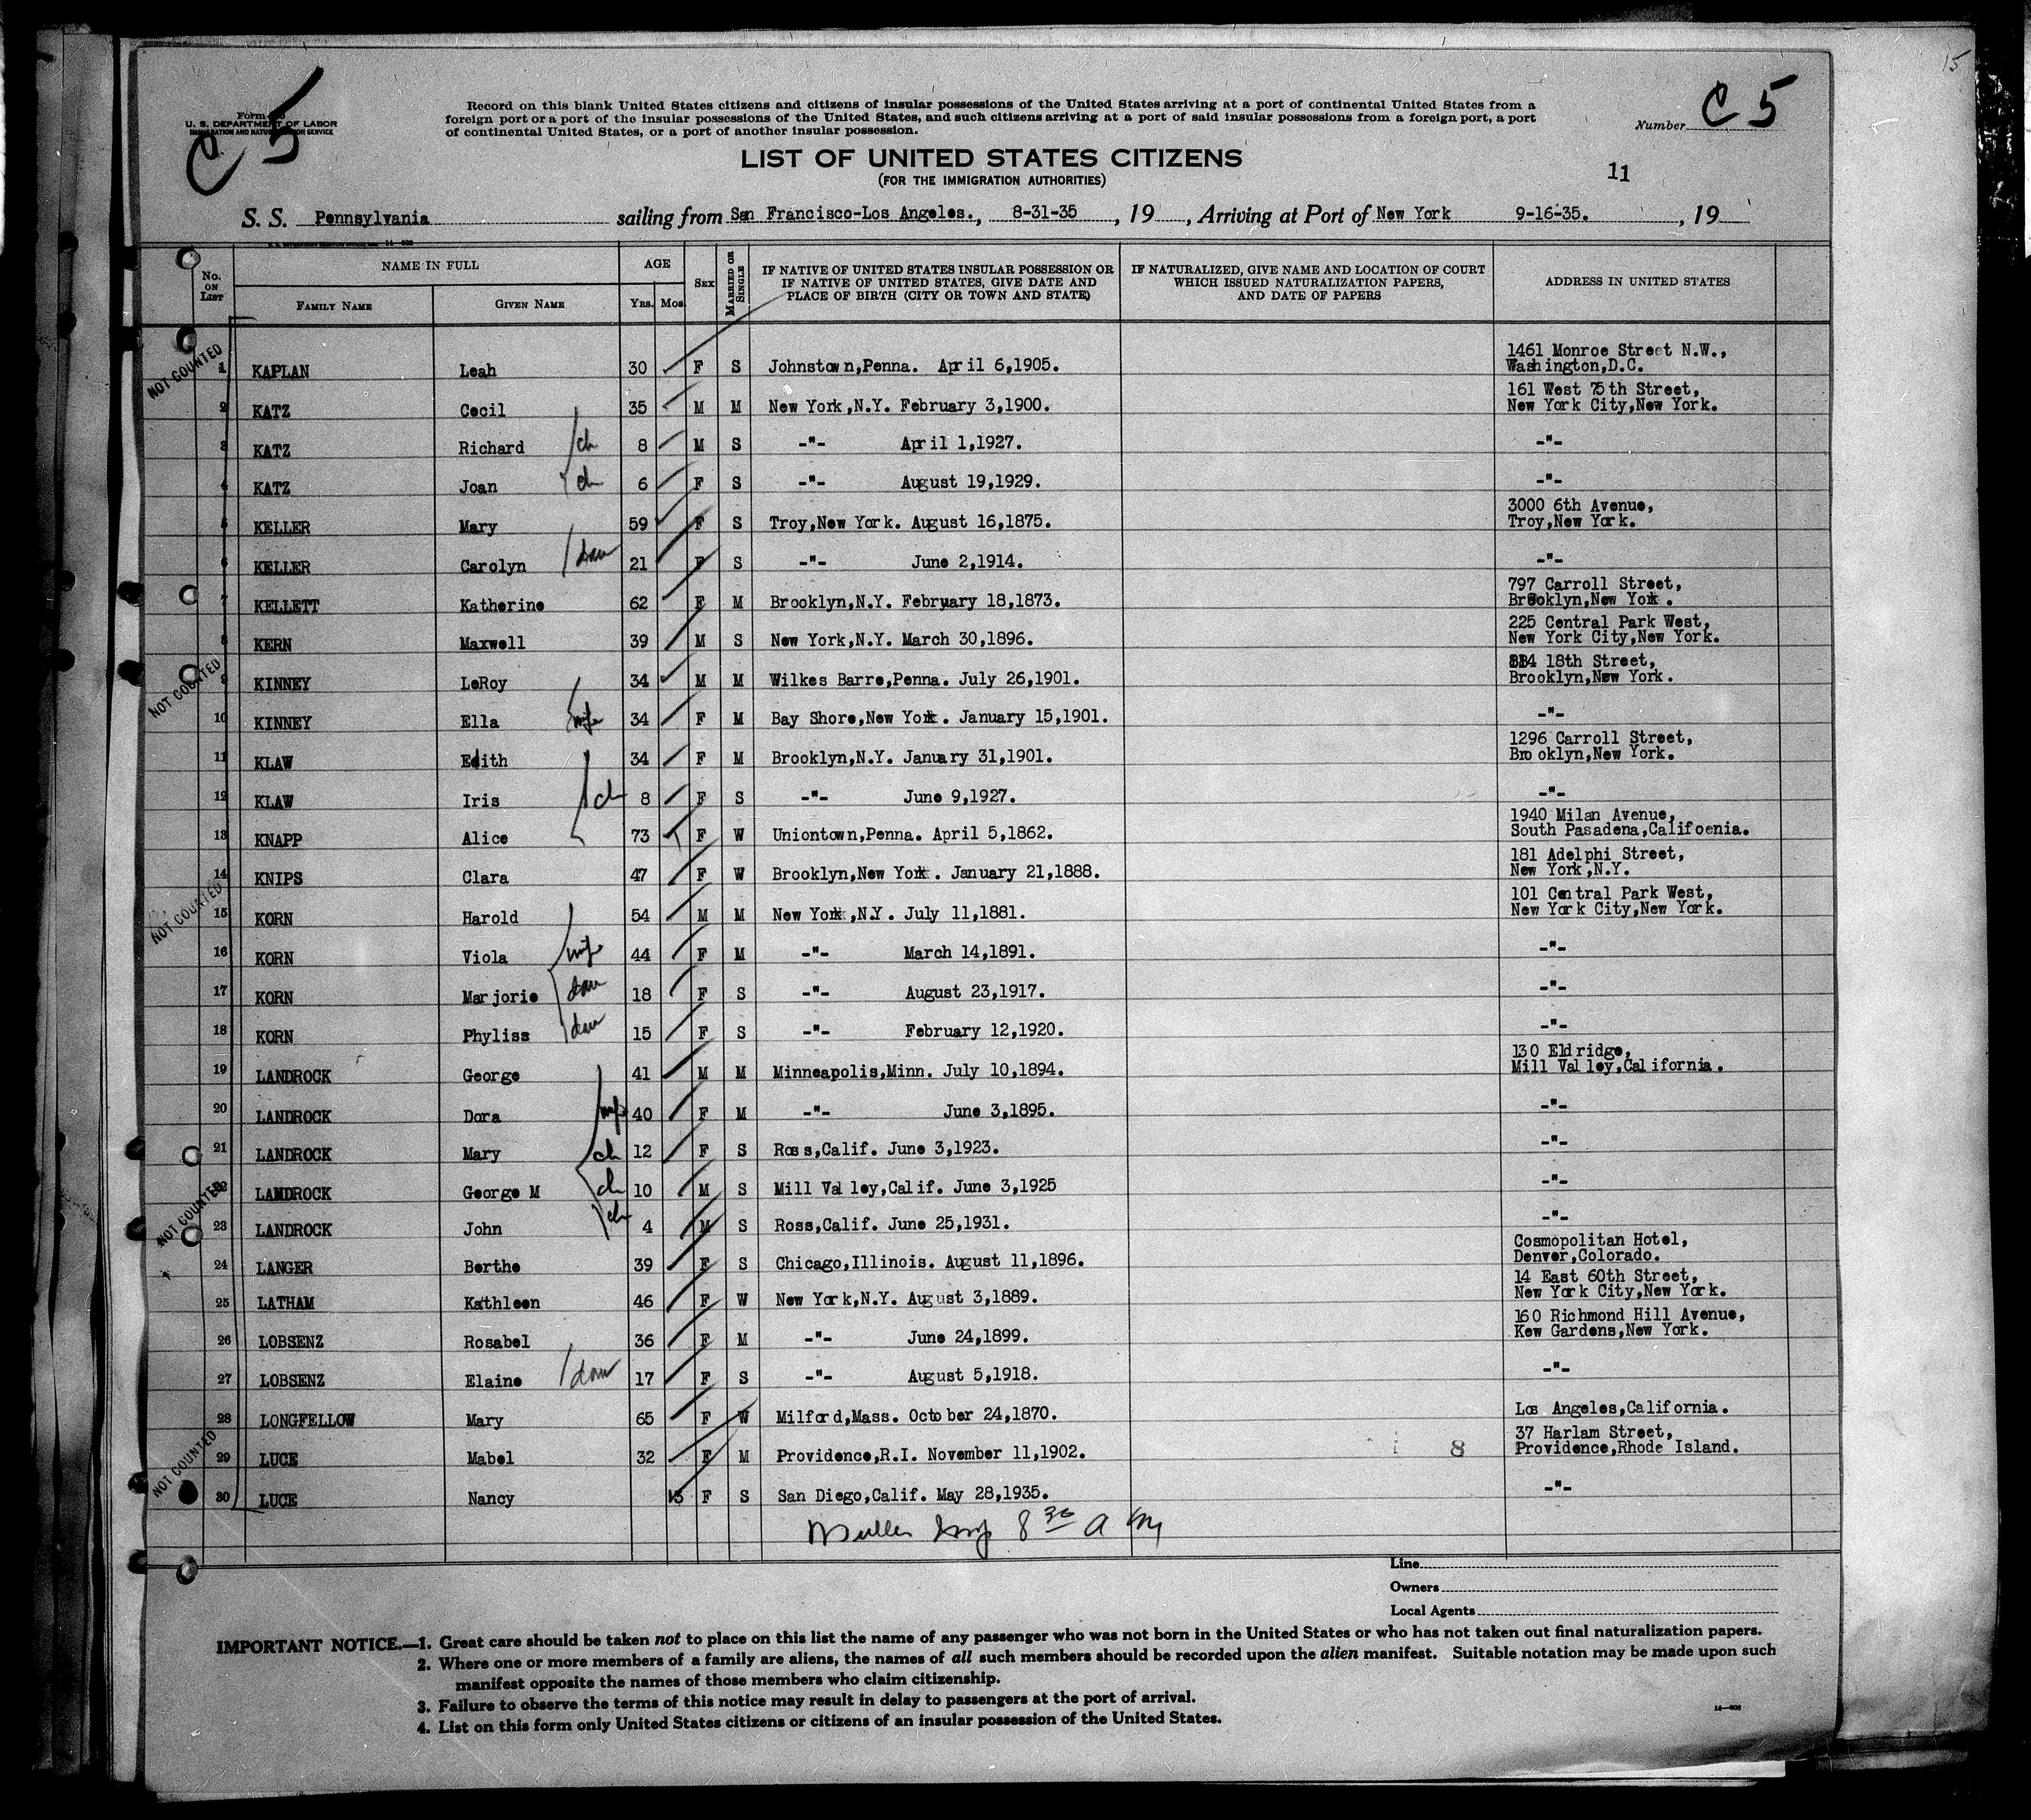 15
Form
U. S. DEPARTMENT OF LABOR
C 5
Record on this blank United States citizens and citizens of insular possessions of the United States arriving at a port of continental United States from a
foreign port or a port of the insular possessions of the United States, and such citizens arriving at a port of said insular possessions from a foreign port, a port
of continental United States, or a port of another insular possession.
Number C 5
LIST OF UNITED STATES CITIZENS
(FOR THE IMMIGRATION AUTHORITIES)
11
S. S. Pennsylvania sailing from San Francisco-Los Angeles., 8-31-35 , 19 , Arriving at Port of New York 9-16-35. , 19
No. ON LIST NAME IN FULL FAMILY NAME GIVEN NAME AGE YRS. MOS SEX MARRIED OR SINGLE IF NATIVE OF UNITED STATES INSULAR POSSESSION OR IF NATIVE OF UNITED STATES, GIVE DATE AND PLACE OF BIRTH (CITY OR TOWN AND STATE) IF NATURALIZED, GIVE NAME AND LOCATION OF COURT WHICH ISSUED NATURALIZATION PAPERS, AND DATE OF PAPERS ADDRESS IN UNITED STATES
NOT COUNTED
1 KAPLAN Leah 30 F S Johnstown,Penna. April 6,1905. 1461 Monroe Street N.W., Washington,D.C.
2 KATZ Cecil 35 M M New York,N.Y. February 3,1900. 161 West 75th Street, New York City,New York.
3 KATZ Richard ch 8 M S -"- April 1,1927. -"-
4 KATZ Joan ch 6 F S -"- August 19,1929. -"-
5 KELLER Mary 59 F S Troy,New York. August 16,1875. 3000 6th Avenue, Troy,New York.
6 KELLER Carolyn dau 21 F S -"- June 2,1914. -"-
7 KELLETT Katherine 62 F M Brooklyn,N.Y. February 18,1873. 797 Carroll Street, Brooklyn,New York.
8 KERN Maxwell 39 M S New York,N.Y. March 30,1896. 225 Central Park West, New York City,New York.
NOT COUNTED
9 KINNEY LeRoy 34 M M Wilkes Barre,Penna. July 26,1901. 18th Street, Brooklyn,New York.
10 KINNEY Ella wife 34 F M Bay Shore,New York. January 15,1901. -"-
11 KLAW Edith 34 F M Brooklyn,N.Y. January 31,1901. 1296 Carroll Street, Brooklyn,New York.
12 KLAW Iris ch 8 F S -"- June 9,1927. -"-
13 KNAPP Alice 73 F W Uniontown,Penna. April 5,1862. 1940 Milan Avenue, South Pasadena,Califoenia.
14 KNIPS Clara 47 F W Brooklyn,New York. January 21,1888. 181 Adelphi Street, New York,N.Y.
NOT COUNTED
15 KORN Harold 54 M M New York,N.Y. July 11,1881. 101 Central Park West, New York City,New York.
16 KORN Viola wife 44 F M -"- March 14,1891. -"-
17 KORN Marjorie dau 18 F S -"- August 23,1917. -"-
18 KORN Phyliss dau 15 F S -"- February 12,1920. -"-
19 LANDROCK George 41 M M Minneapolis,Minn. July 10,1894. 130 Eldridge, Mill Valley,California.
20 LANDROCK Dora wife 40 F M -"- June 3,1895. -"-
21 LANDROCK Mary ch 12 F S Ross,Calif. June 3,1923. -"-
22 LANDROCK George M ch 10 M S Mill Valley,Calif. June 3,1925 -"-
NOT COUNTED
23 LANDROCK John ch 4 M S Ross,Calif. June 25,1931. -"-
24 LANGER Berthe 39 F S Chicago,Illinois. August 11,1896. Cosmopolitan Hotel, Denver,Colorado.
25 LATHAM Kathleen 46 F W New York,N.Y. August 3,1889. 14 East 60th Street, New York City,New York.
26 LOBSENZ Rosabel 36 F M -"- June 24,1899. 160 Richmond Hill Avenue, Kew Gardens,New York.
27 LOBSENZ Elaine dau 17 F S -"- August 5,1918. -"-
28 LONGFELLOW Mary 65 F W Milford,Mass. October 24,1870. Los Angeles,California.
NOT COUNTED
29 LUCE Mabel 32 F M Providence,R.I. November 11,1902. 8 37 Harlam Street, Providence,Rhode Island.
30 LUCE Nancy F S San Diego,Calif. May 28,1935. -"-
8 30 a m
Line
Owners
Local Agents
IMPORTANT NOTICE.—1. Great care should be taken not to place on this list the name of any passenger who was not born in the United States or who has not taken out final naturalization papers.
2. Where one or more members of a family are aliens, the names of all such members should be recorded upon the alien manifest. Suitable notation may be made upon such
manifest opposite the names of those members who claim citizenship.
3. Failure to observe the terms of this notice may result in delay to passengers at the port of arrival.
4. List on this form only United States citizens or citizens of an insular possession of the United States.